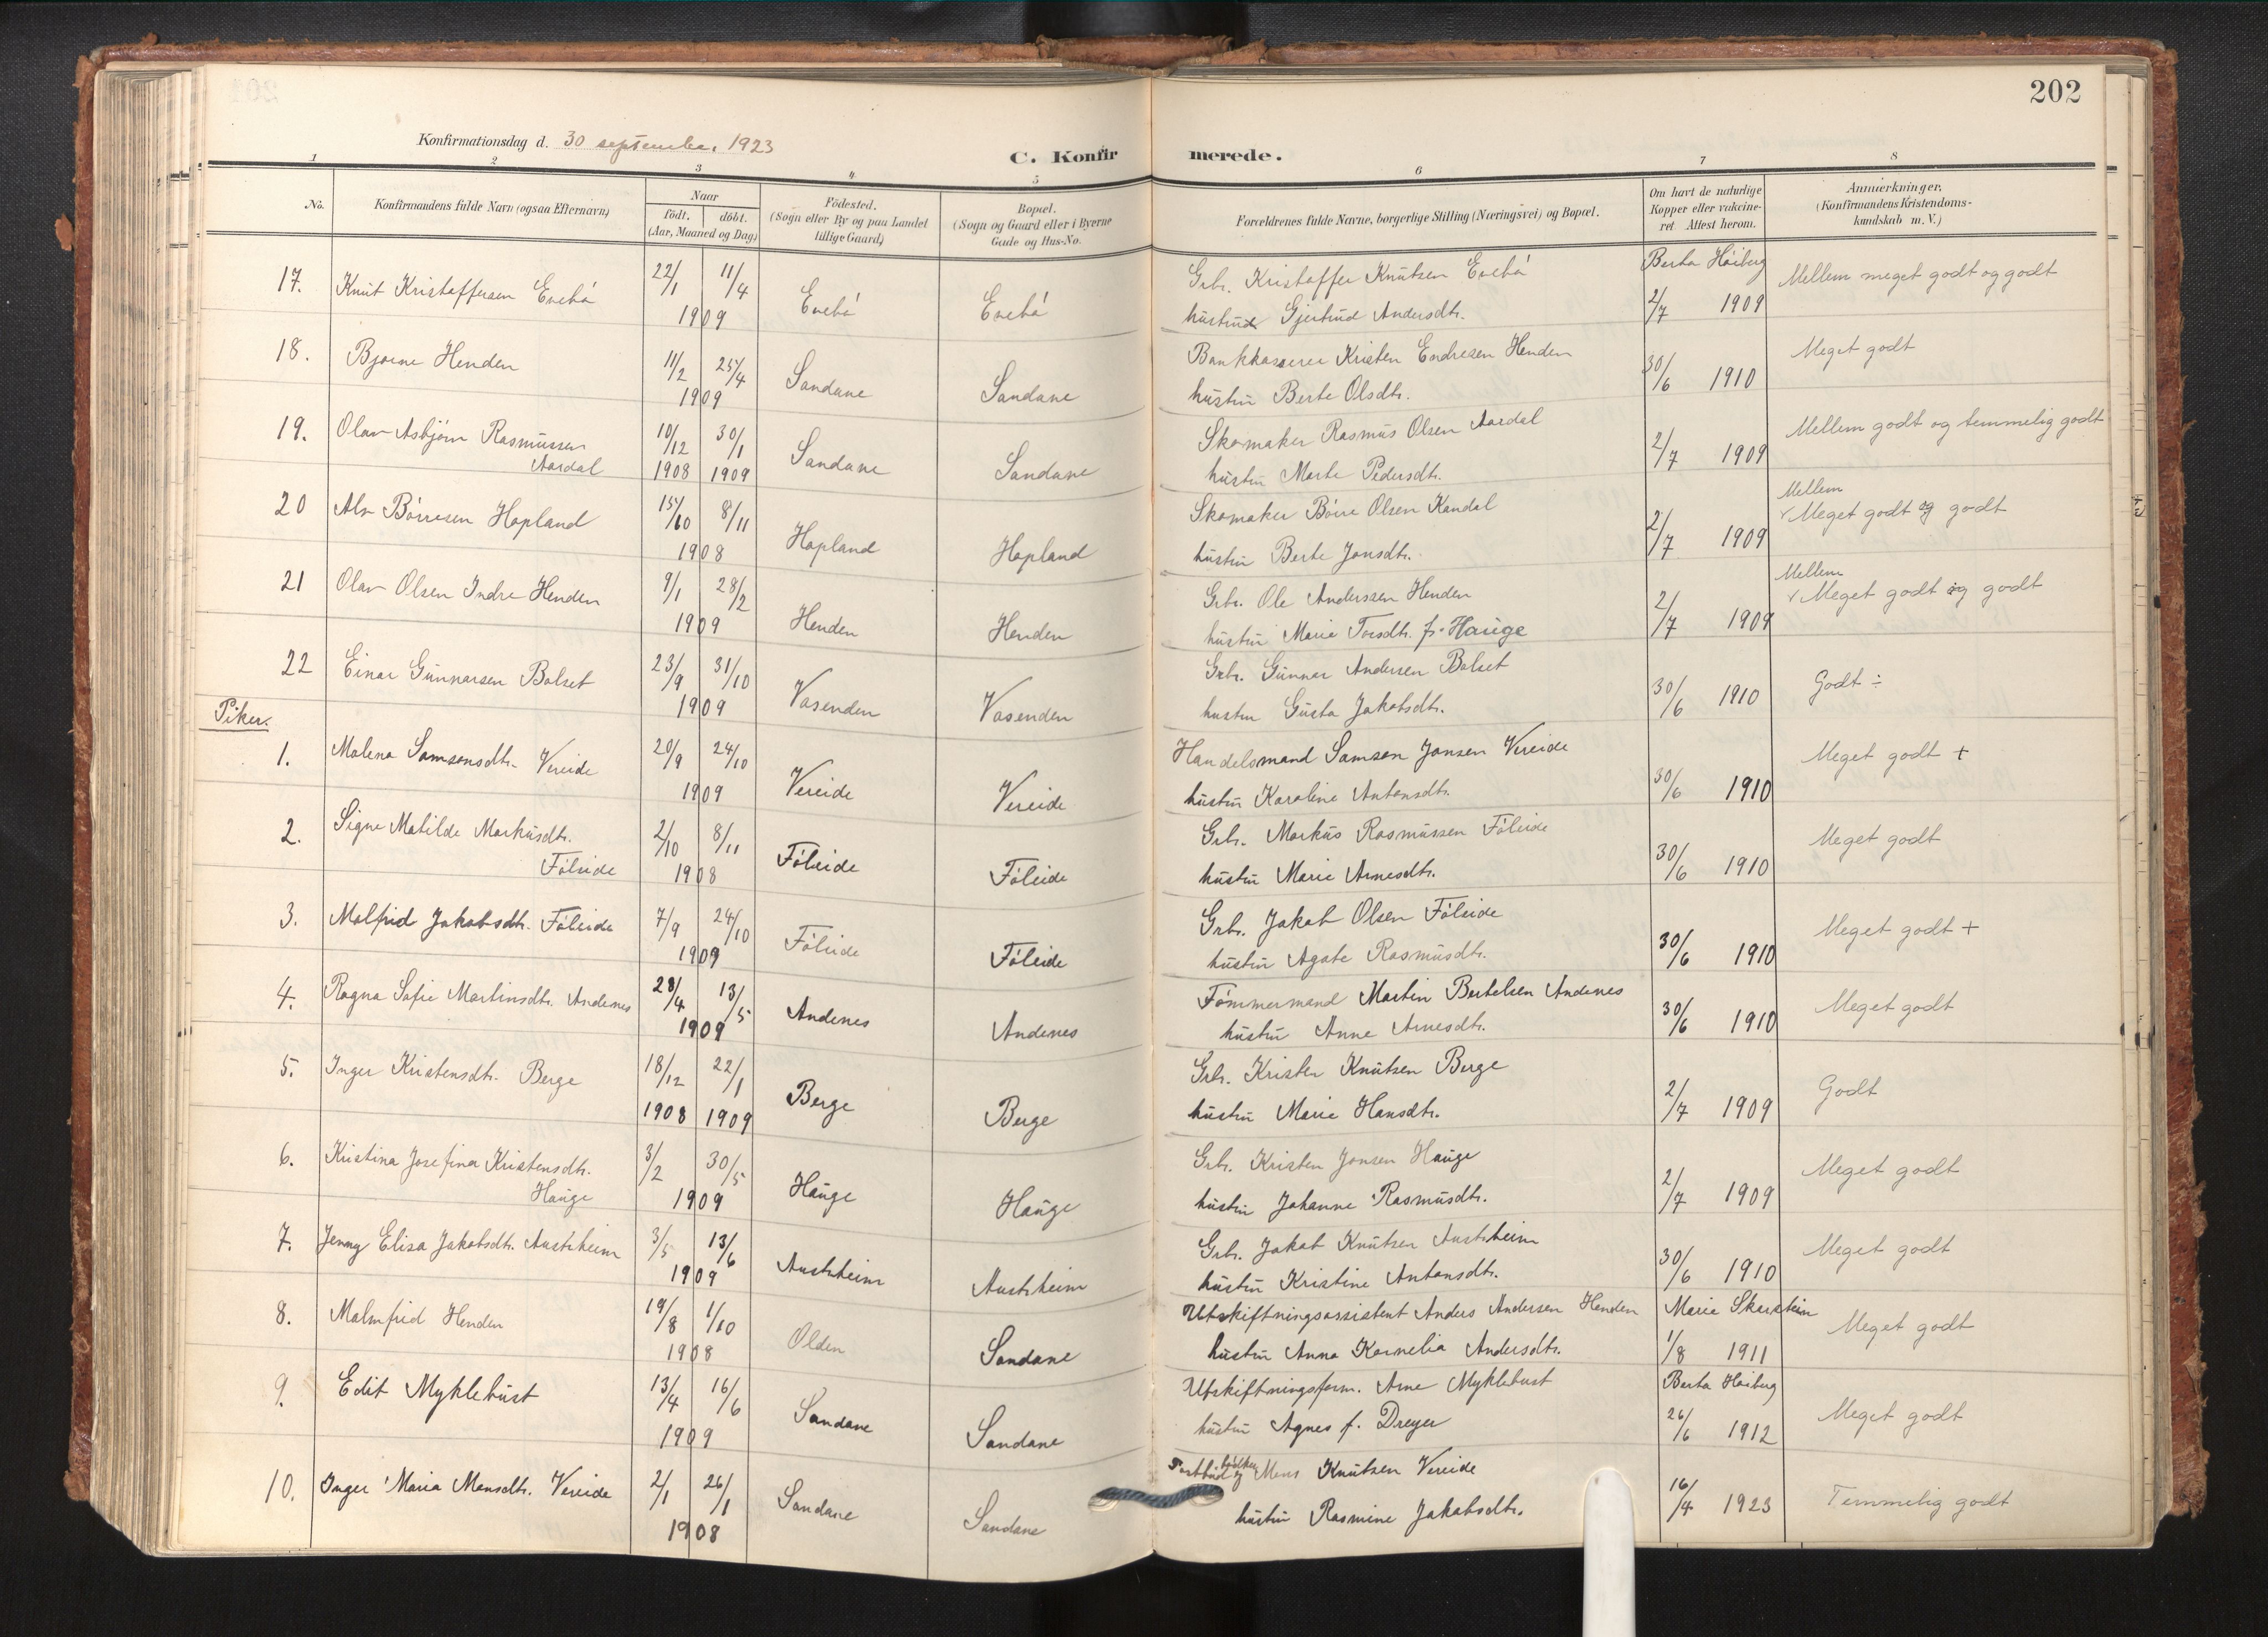 202
Konfirmationsdag d. 30 september 1923
C. Konfirmerede.
1 2 3 4 5 6 7 8
No.
Konfirmandens fulde Navn (ogsaa Efternavn)
Naar
födt. döbt.
(Aar, Maaned og Dag)
Födested.
(Sogn eller By og paa Landet
tillige Gaard)
Bopæl.
(Sogn og Gaard eller i Byerne
Gade og Hus-No.
Forældrenes fulde Navne, borgerlige Stilling (Næringsvei) og Bopæl.
Om havt de naturlige
Kopper eller vakcine-
ret. Attest herom.
Anmærkninger.
(Konfirmandens Kristendoms-
kundskab m. V.)
17. Knut Kristoffersen Evebö 22/1 11/4 Evebö Evebö Grbr. Kristoffer Knutsen Evebö Berta Höiberg Mellem meget godt og godt
1909 hustru Gjertrud Andersdtr. 2/7 1909
18. Bjarne Henden 11/2 25/4 Sandane Sandane Bankkasserer Kristen Endresen Henden 30/6 1910 Meget godt
1909 hustru Berte Olsdtr.
19. Olav Asbjörn Rasmussen 10/12 30/1 Sandane Sandane Skomaker Rasmus Olsen Aardal 2/7 1909 Mellem godt og temmelig godt
Aardal 1908 1909 hustru Marte Pedersdtr.
20 Alv Börresen Hopland 15/10 8/11 Hopland Hopland Skomaker Börre Olsen Kandal 2/7 1909 Mellem
Meget godt og godt
1908 hustru Berte Jonsdtr.
21 Olav Olsen Indre Henden 9/1 28/2 Henden Henden Grbr. Ole Anderssen Henden 2/7 1909 Mellem
Meget godt og godt
1909 hustru Marie Torsdtr. f. Hauge
22 Einar Gunnarsen Bolset 23/9 31/10 Vasenden Vasenden Grbr. Gunnar Andersen Bolset 30/6 1910 Godt ÷
1909 hustru Gusta Jakobsdtr.
Piker.
1. Malena Samsonsdtr. Vereide 20/9 24/10 Vereide Vereide Handelsmand Samson Jonsen Vereide 30/6 1910 Meget godt +
1909 hustru Karoline Antonsdtr.
2. Signe Matilde Markusdtr. 2/10 8/11 Föleide Föleide Grbr. Markus Rasmussen Föleide 30/6 1910 Meget godt
Föleide 1908 hustru Marie Arnesdtr.
3. Malfrid Jakobsdtr. Föleide 7/9 24/10 Föleide Föleide Grbr. Jakob Olsen Föleide 30/6 1910 Meget godt +
1909 hustru Agate Rasmusdtr.
4. Ragna Sofie Martinsdtr. Andenes 28/4 13/5 Andenes Andenes Tömmermand Martin Bertelsen Andenes 30/6 1910 Meget godt
1909 hustru Anne Arnesdtr.
5. Inger Kristensdtr. Berge 18/12 22/1 Berge Berge Grbr. Kristen Knutsen Berge 2/7 1909 Godt
1908 1909 hustru Marie Hansdtr.
6. Kristina Josefina Kristensdtr. 3/2 30/5 Hauge Hauge Grbr. Kristen Jonsen Hauge 2/7 1909 Meget godt
Hauge 1909 hustru Johanne Rasmusdtr.
7. Jenny Elisa Jakobsdtr. Austrheim 3/5 13/6 Austrheim Austrheim Grbr. Jakob Knutsen Austrheim 30/6 1910 Meget godt
1909 hustru Kristine Antonsdtr.
8. Malmfrid Henden 19/8 1/10 Olden Sandane Utskiftningsassistent Anders Andersen Henden Marie Skarstein Meget godt
1908 hustru Anna Kornelia Andersdtr. 1/8 1911
9. Edit Myklebust 13/4 16/6 Sandane Sandane Utskiftningsform. Arne Myklebust Berta Höiberg Meget godt
1909 hustru Agnes f. Dreyer 26/6 1912
10. Inger Maria Monsdtr. Vereide 2/1 26/1 Sandane Sandane Postbud og bödker Mons Knutsen Vereide 16/4 1923 Temmelig godt
1908 hustru Rasmine Jakobsdtr.